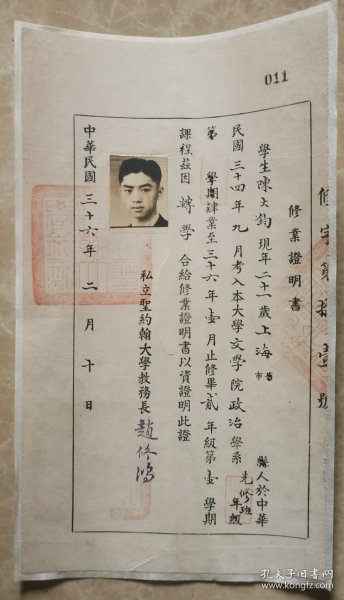 011
修字第拾壹號
修業證明書
學生陳大鈞現年二十一歲上海市省縣人於中華
民國三十四年九月考入本大學文學院政治學系先修班年級
第學期肄業至三十六年壹月止修畢貳年級第壹學期
課程茲因轉學合給修業證明書以資證明此證
私立聖約翰大學教務長趙修鴻
中華民國三十六年二月十日
孔夫子旧书网